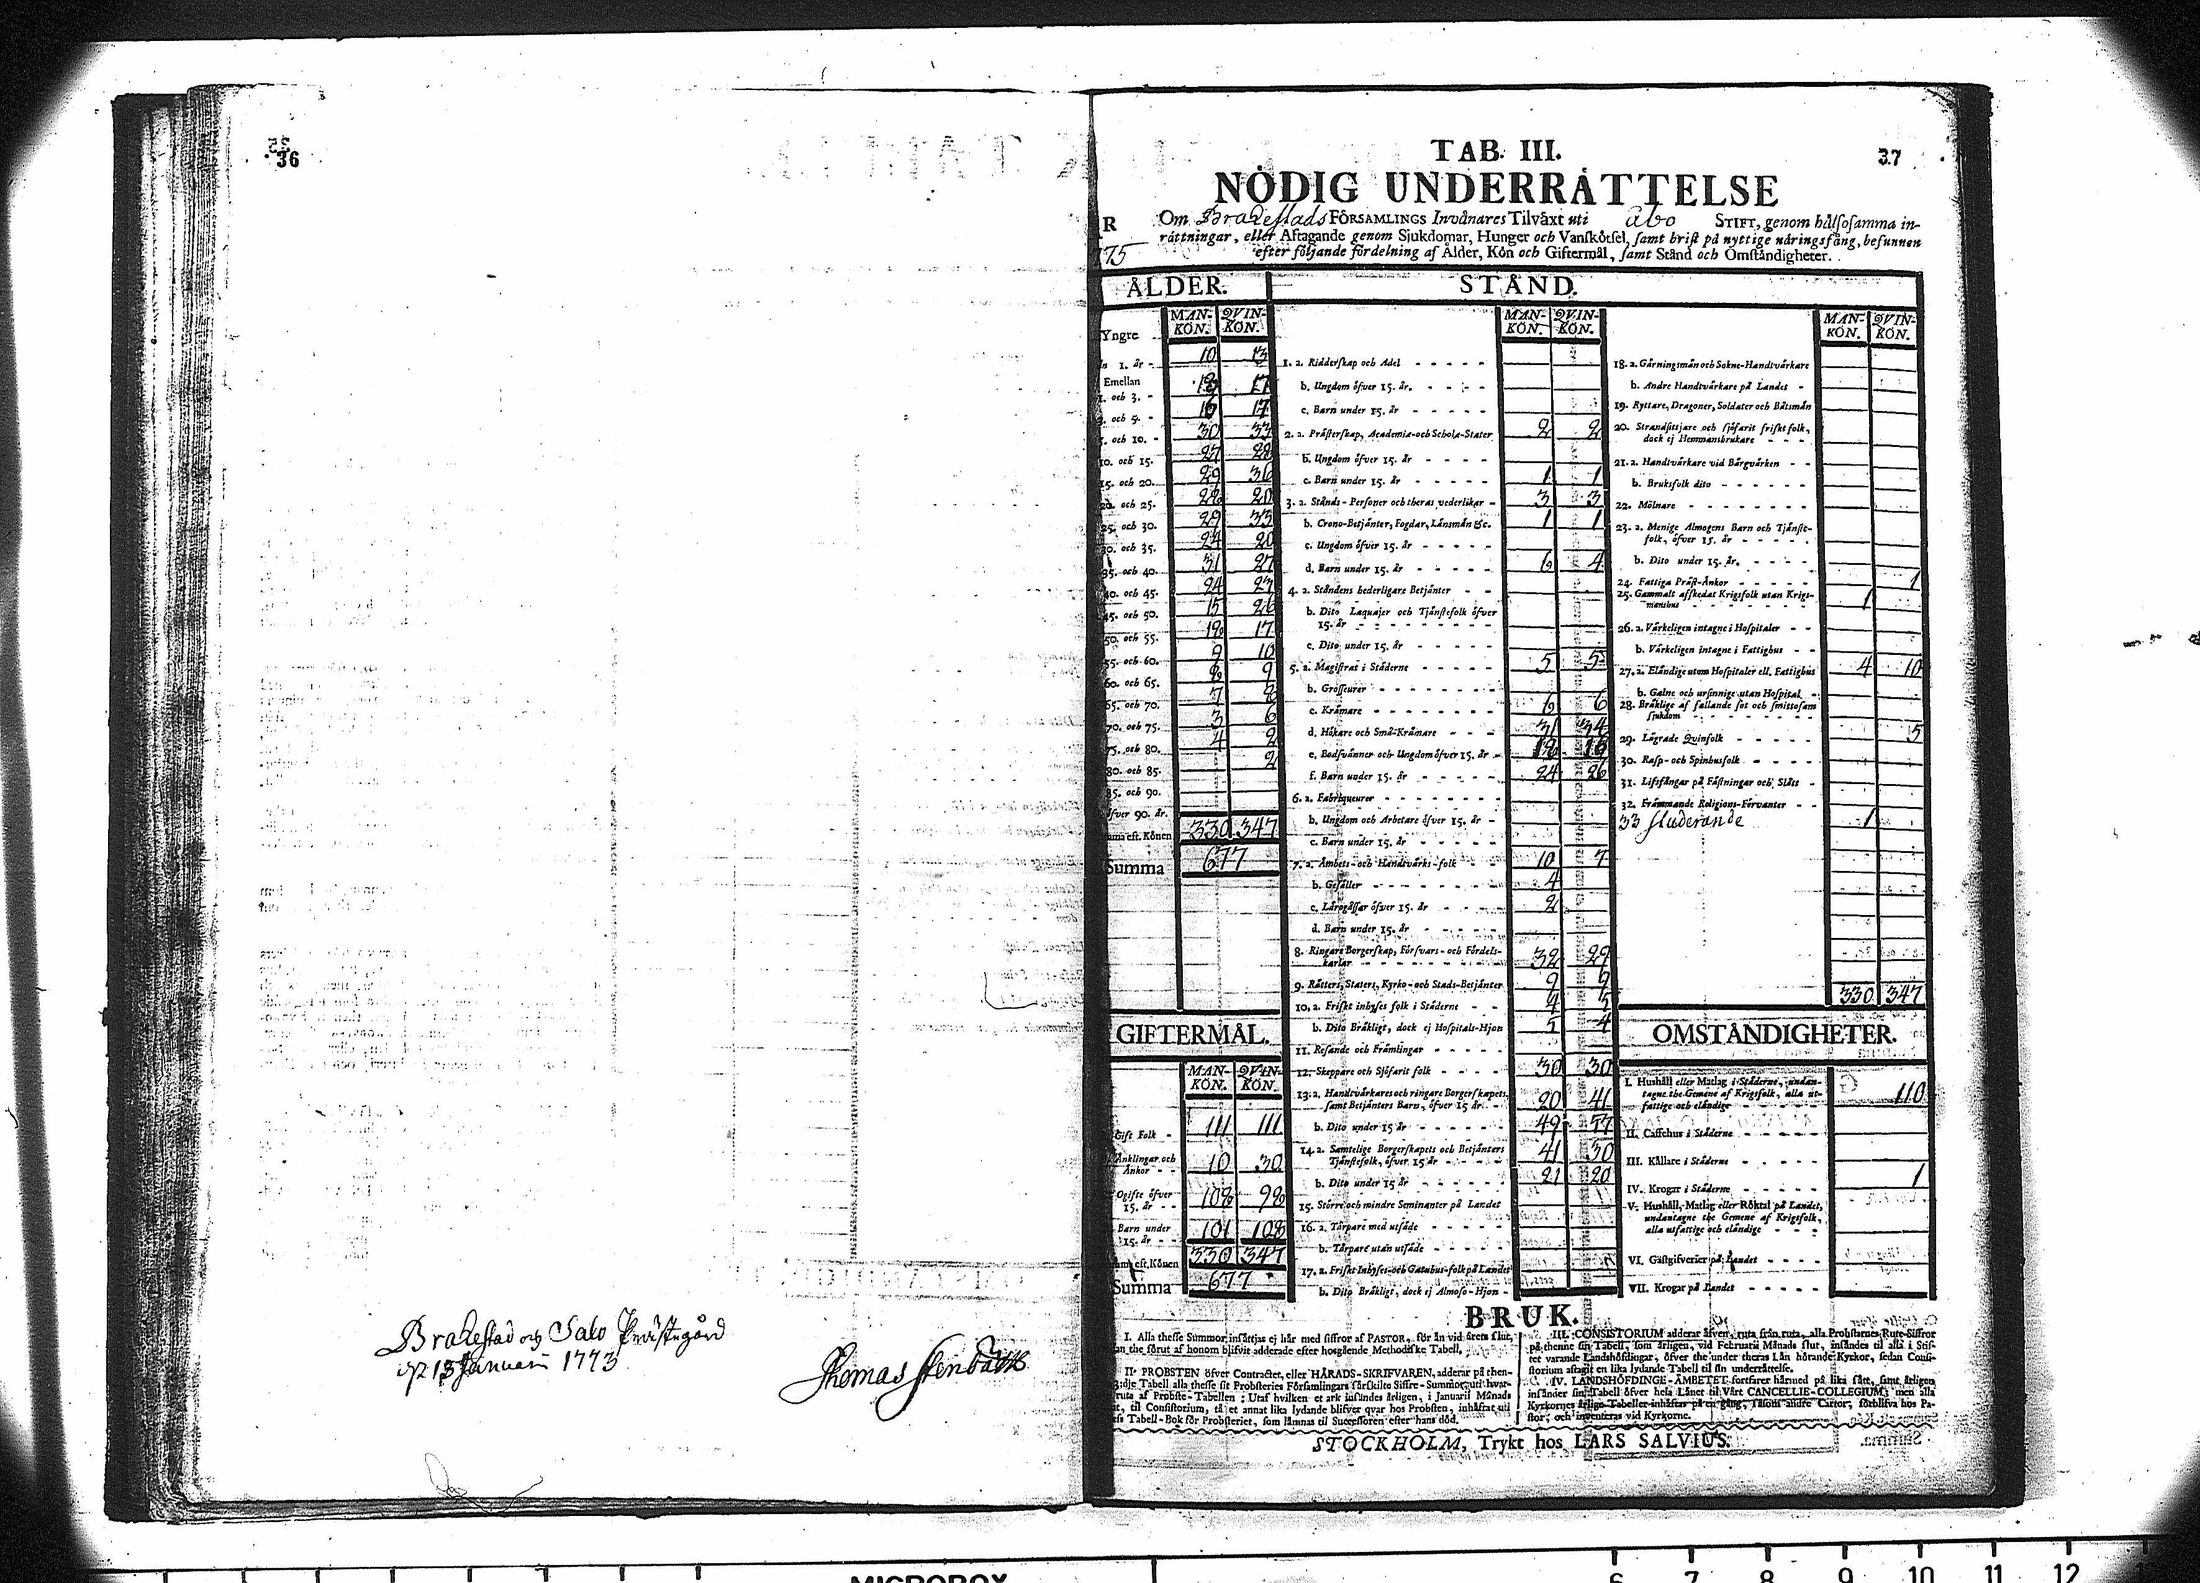 36
Brahestad och Salo Prästegård
d 13 Januarii 1773
Thomas Stenbäck
37
TAB. III.
NÖDIG UNDERRÅTTELSE
R
Om Brahestads FÖRSAMLINGS Invånares Tilvåxt uti åbo STIFT, genom hålsosamma in-
råttningar, eller Aftagande genom Sjukdomar, Hunger och Vanskötsel, samt brist på nyttige nåringsfång, befunnen
75
efter följande fördelning af Ålder, Kön och Giftermål, samt Stånd och Omståndigheter.
ÅLDER.
MAN-KÖN. QVIN-KÖN.
Yngre
1. år - 10 13
Emellan
1. och 3. - 18 17
3. och 5. - 16 17
5. och 10. - 30 33
10. och 15. 27 28
15. och 20. 29 36
20. och 25. 28 20
25. och 30. 29 33
30. och 35. 24 20
35. och 40. 31 27
40. och 45. 24 23
45. och 50. 15 26
50. och 55. 18 17
55. och 60. 9 10
60. och 65. 8 9
65. och 70. 7 8
70. och 75. 3 6
75. och 80. 4 2
80. och 85. 2
85. och 90.
öfver 90. år.
eft. Könen 330 347
Summa 677
GIFTERMÅL.
MAN-KÖN. QVIN-KÖN.
Gift Folk - 111 111
Ånklingar och
Ånkor - - 10 30
Ogifte öfver
15. år - - 108 98
Barn under
15. år - - 101 108
eft. Könen 330 347
Summa 677
STÅND.
MAN-KÖN. QVIN-KÖN.
1. a. Ridderskap och Adel
b. Ungdom öfver 15. år.
c. Barn under 15. år
2. a. Pråsterskap, Academiæ-och Scholæ-Stater 2 2
b. Ungdom öfver 15. år
c. Barn under 15. år 1 1
3. a. Stånds-Personer och theras vederlikar 3 3
b. Crono-Betjånter, Fogdar, Lånsmån &c. 1 1
c. Ungdom öfver 15. år
d. Barn under 15. år 6 4
4. a. Ståndens hederligare Betjånter
b. Dito Laquajer och Tjånstefolk öfver
15. år
c. Dito under 15. år
5. a. Magistrat i Ståderne 5 5
b. Grosseurer
c. Kråmare 6 6
d. Hökare och Små-Kråmare 31 34
e. Bodsvånner och Ungdom öfver 15. år 18 16
f. Barn under 15. år 24 26
6. a. Fabriqueurer
b. Ungdom och Arbetare öfver 15. år
c. Barn under 15. år
7. a. Åmbets-och Handtvårks-folk 10 7
b. Gesåller 4
c. Lårogåssar öfver 15. år 2
d. Barn under 15. år
8. Ringare Borgerskap, Försvars-och Fördels-
karlar 32 29
9. Råtters, Staters, Kyrko-och Stads-Betjånter 9 9
10. a. Friskt inhyses folk i Ståderne 4 5
b. Dito Bråkligt, dock ej Hospitals-Hjon 5 4
11. Resande och Fråmlingar
12. Skeppare och Sjöfarit folk 30 30
13. a. Handtvårkares och ringare Borgerskapets,
samt Betjånters Barn, öfver 15 år 20 41
b. Dito under 15 år 49 57
14. a. Samtelige Borgerskapets och Betjånters
Tjånstefolk, öfver 15 år 41 30
b. Dito under 15 år 21 20
15. Större och mindre Seminanter på Landet
16. a. Torpare med utsåde
b. Torpare utan utsåde
17. a. Friskt Inhyses-och Gatuhus-folk på Landet
b. Dito Bråkligt, dock ej Almoso-Hjon
MAN-KÖN. QVIN-KÖN.
18. a. Gårningsmån och Sokne-Handtvårkare
b. Andre Handtvårkare på Landet
19. Ryttare, Dragoner, Soldater och Båtsmån
20. Strandsittjare och sjöfarit friskt folk,
dock ej Hemmansbrukare
21. a. Handtvårkare vid Bårgvårken
b. Bruksfolk dito
22. Mölnare
23. a. Menige Almogens Barn och Tjånste-
folk, öfver 15. år
b. Dito under 15. år.
24. Fattiga Pråst-Ånkor 1
25. Gammalt afskedat Krigsfolk utan Krigs-
manshus 1
26. a. Vårkeligen intagne i Hospitaler
b. Vårkeligen intagne i Fattighus
27. a. Elåndige utom Hospitaler ell. Fattighus 4 10
b. Galne och ursinnige utan Hospital
28. Bråklige af fallande sot och smittosam
sjukdom
29. Lågrade Qvinfolk 5
30. Rasp-och Spinhusfolk
31. Lifsfångar på Fåstningar och Slått
32. Fråmmande Religions-Förvanter
33 Studerande 1
330 347
OMSTÅNDIGHETER.
I. Hushåll eller Matlag i Ståderne, undan-
tagne the Gemene af Krigsfolk, alla ut-
fattige och elåndige 110
II. Caffehus i Ståderne
III. Kållare i Ståderne
IV. Krogar i Ståderne 1
V. Hushåll, Matlag eller Röktal på Landet,
undantagne the Gemene af Krigsfolk,
alla utfattige och elåndige
VI. Gåstgifverier på Landet
VII. Krogar på Landet
BRUK.
I. Alla thesse Summor insåttjas ej hår med siffror af PASTOR, för ån vid årets slut,
an the förut af honom blifvit adderade efter hosgående Methodiske Tabell.
II. PROBSTEN öfver Contractet, eller HÅRADS-SKRIFVAREN, adderar på then-
Tabell alla thesse sit Probsteries Församlingars sårskilte Siffre-Summor, uti hvar-
ruta af Probste-Tabellen: Utaf hvilken et ark insåndes årligen, i Januarii Månads
, til Consistorium, tå et annat lika lydande blifver qvar hos Probsten, inhåftat uti
Tabell-Bok för Probsteriet, som låmnas til Successoren efter hans död.
III. CONSISTORIUM adderar åfven, ruta från ruta, alla Probstarnes Rute-Siffror
på thenne sin Tabell, som årligen, vid Februarii Månads slut, insåndes til alla i Stif-
tet varande Landshöfdingar, öfver the under theras Lån hörande Kyrkor, sedan Consi-
storium aftagit en lika lydande Tabell til sin underråttelse.
IV. LANDSHÖFDINGE-ÅMBETET fortfarer hårmed på lika sått, samt årligen
insånder sin Tabell öfver hela Lånet til Vårt CANCELLIE-COLLEGIUM; men alla
Kyrkornes årlige Tabeller inhåftas på en gång, såsom andre Cartor, förblifva hos Pa-
stor, och inventeras vid Kyrkorne.
STOCKHOLM, Trykt hos LARS SALVIUS.
MICROBOX
6 7 8 9 10 11 12